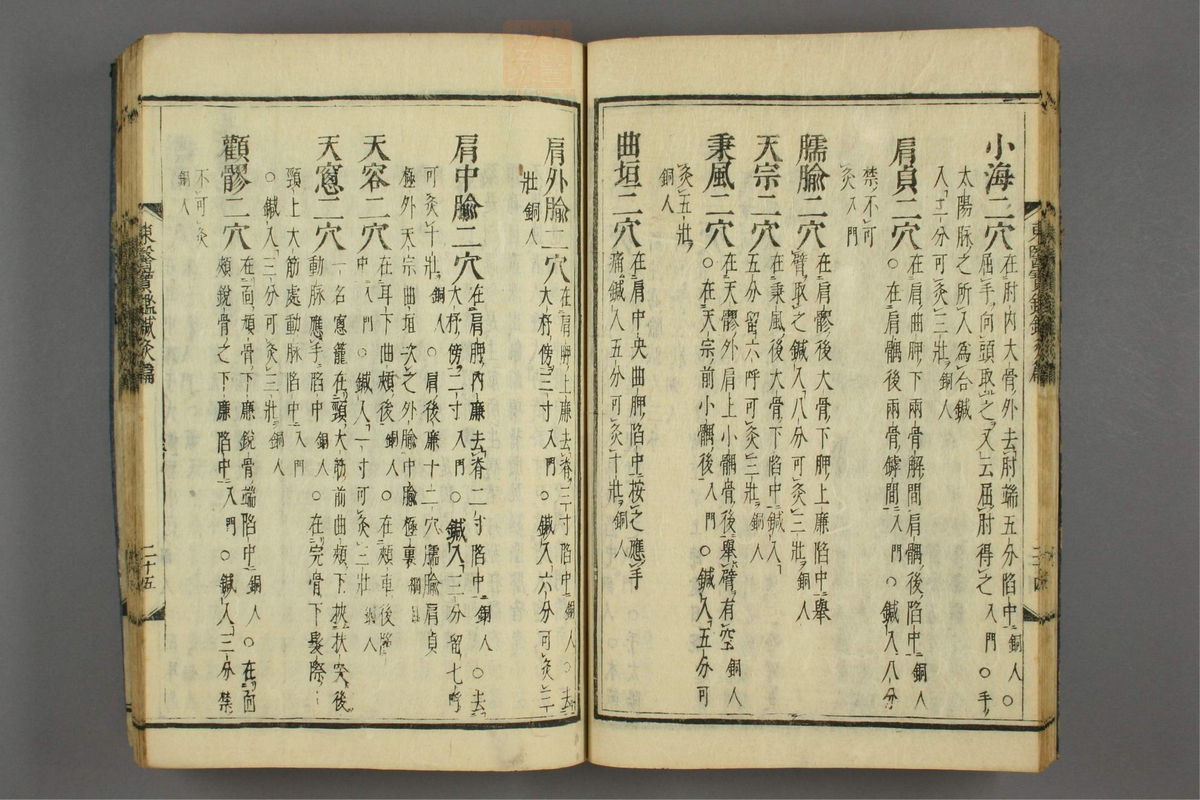 東醫寶鑑鍼灸篇 二十四
小海二穴
在肘内大骨外去肘端五分陷中銅人○
屈手向頭取之又云屈肘得之入門○手
太陽脉之所入爲合鍼
入二分可灸三壯銅人
肩貞二穴
在肩曲胛下兩骨解間肩髃後陷中銅人
○在肩髃後兩骨罅間入門○鍼入八分
禁不可
灸入門
臑腧二穴
在肩髎後大骨下胛上廉陷中擧
臂取之鍼入八分可灸三壯銅人
天宗二穴
在秉風後大骨下陷中鍼入
五分留六呼可灸三壯銅人
秉風二穴
在天髎外肩上小髃骨後擧臂有空銅人
○在天宗前小髃後入門○鍼入五分可
灸五壯
銅人
曲垣二穴
在肩中央曲胛陷中按之應手
痛鍼入五分可灸十壯銅人
肩外腧二穴
在肩胛上廉去脊三寸陷中銅人○去
大杼傍三寸入門○鍼入六分可灸三
壯銅人
肩中腧二穴
在肩胛内廉去脊二寸陷中銅人○去
大杼傍二寸入門○鍼入三分留七呼
可灸十壯銅人○肩後廉十二穴臑腧肩貞
極外天宗曲垣次之外腧中腧極裏綱目
天容二穴
在耳下曲頰後銅人○在頰車後陷
中入門○鍼入一寸可灸三壯銅人
天窓二穴
一名窓籠在頸大筋前曲頰下扶突後
動脉應手陷中銅人○在完骨下髮際
頸上大筋處動脉陷中入門
○鍼入三分可灸三壯銅人
顴髎二穴
在面頄骨下廉銳骨端陷中銅人○在面
頰銳骨之下廉陷中入門○鍼入三分禁
不可灸
銅人
東醫寶鑑鍼灸篇 二十五